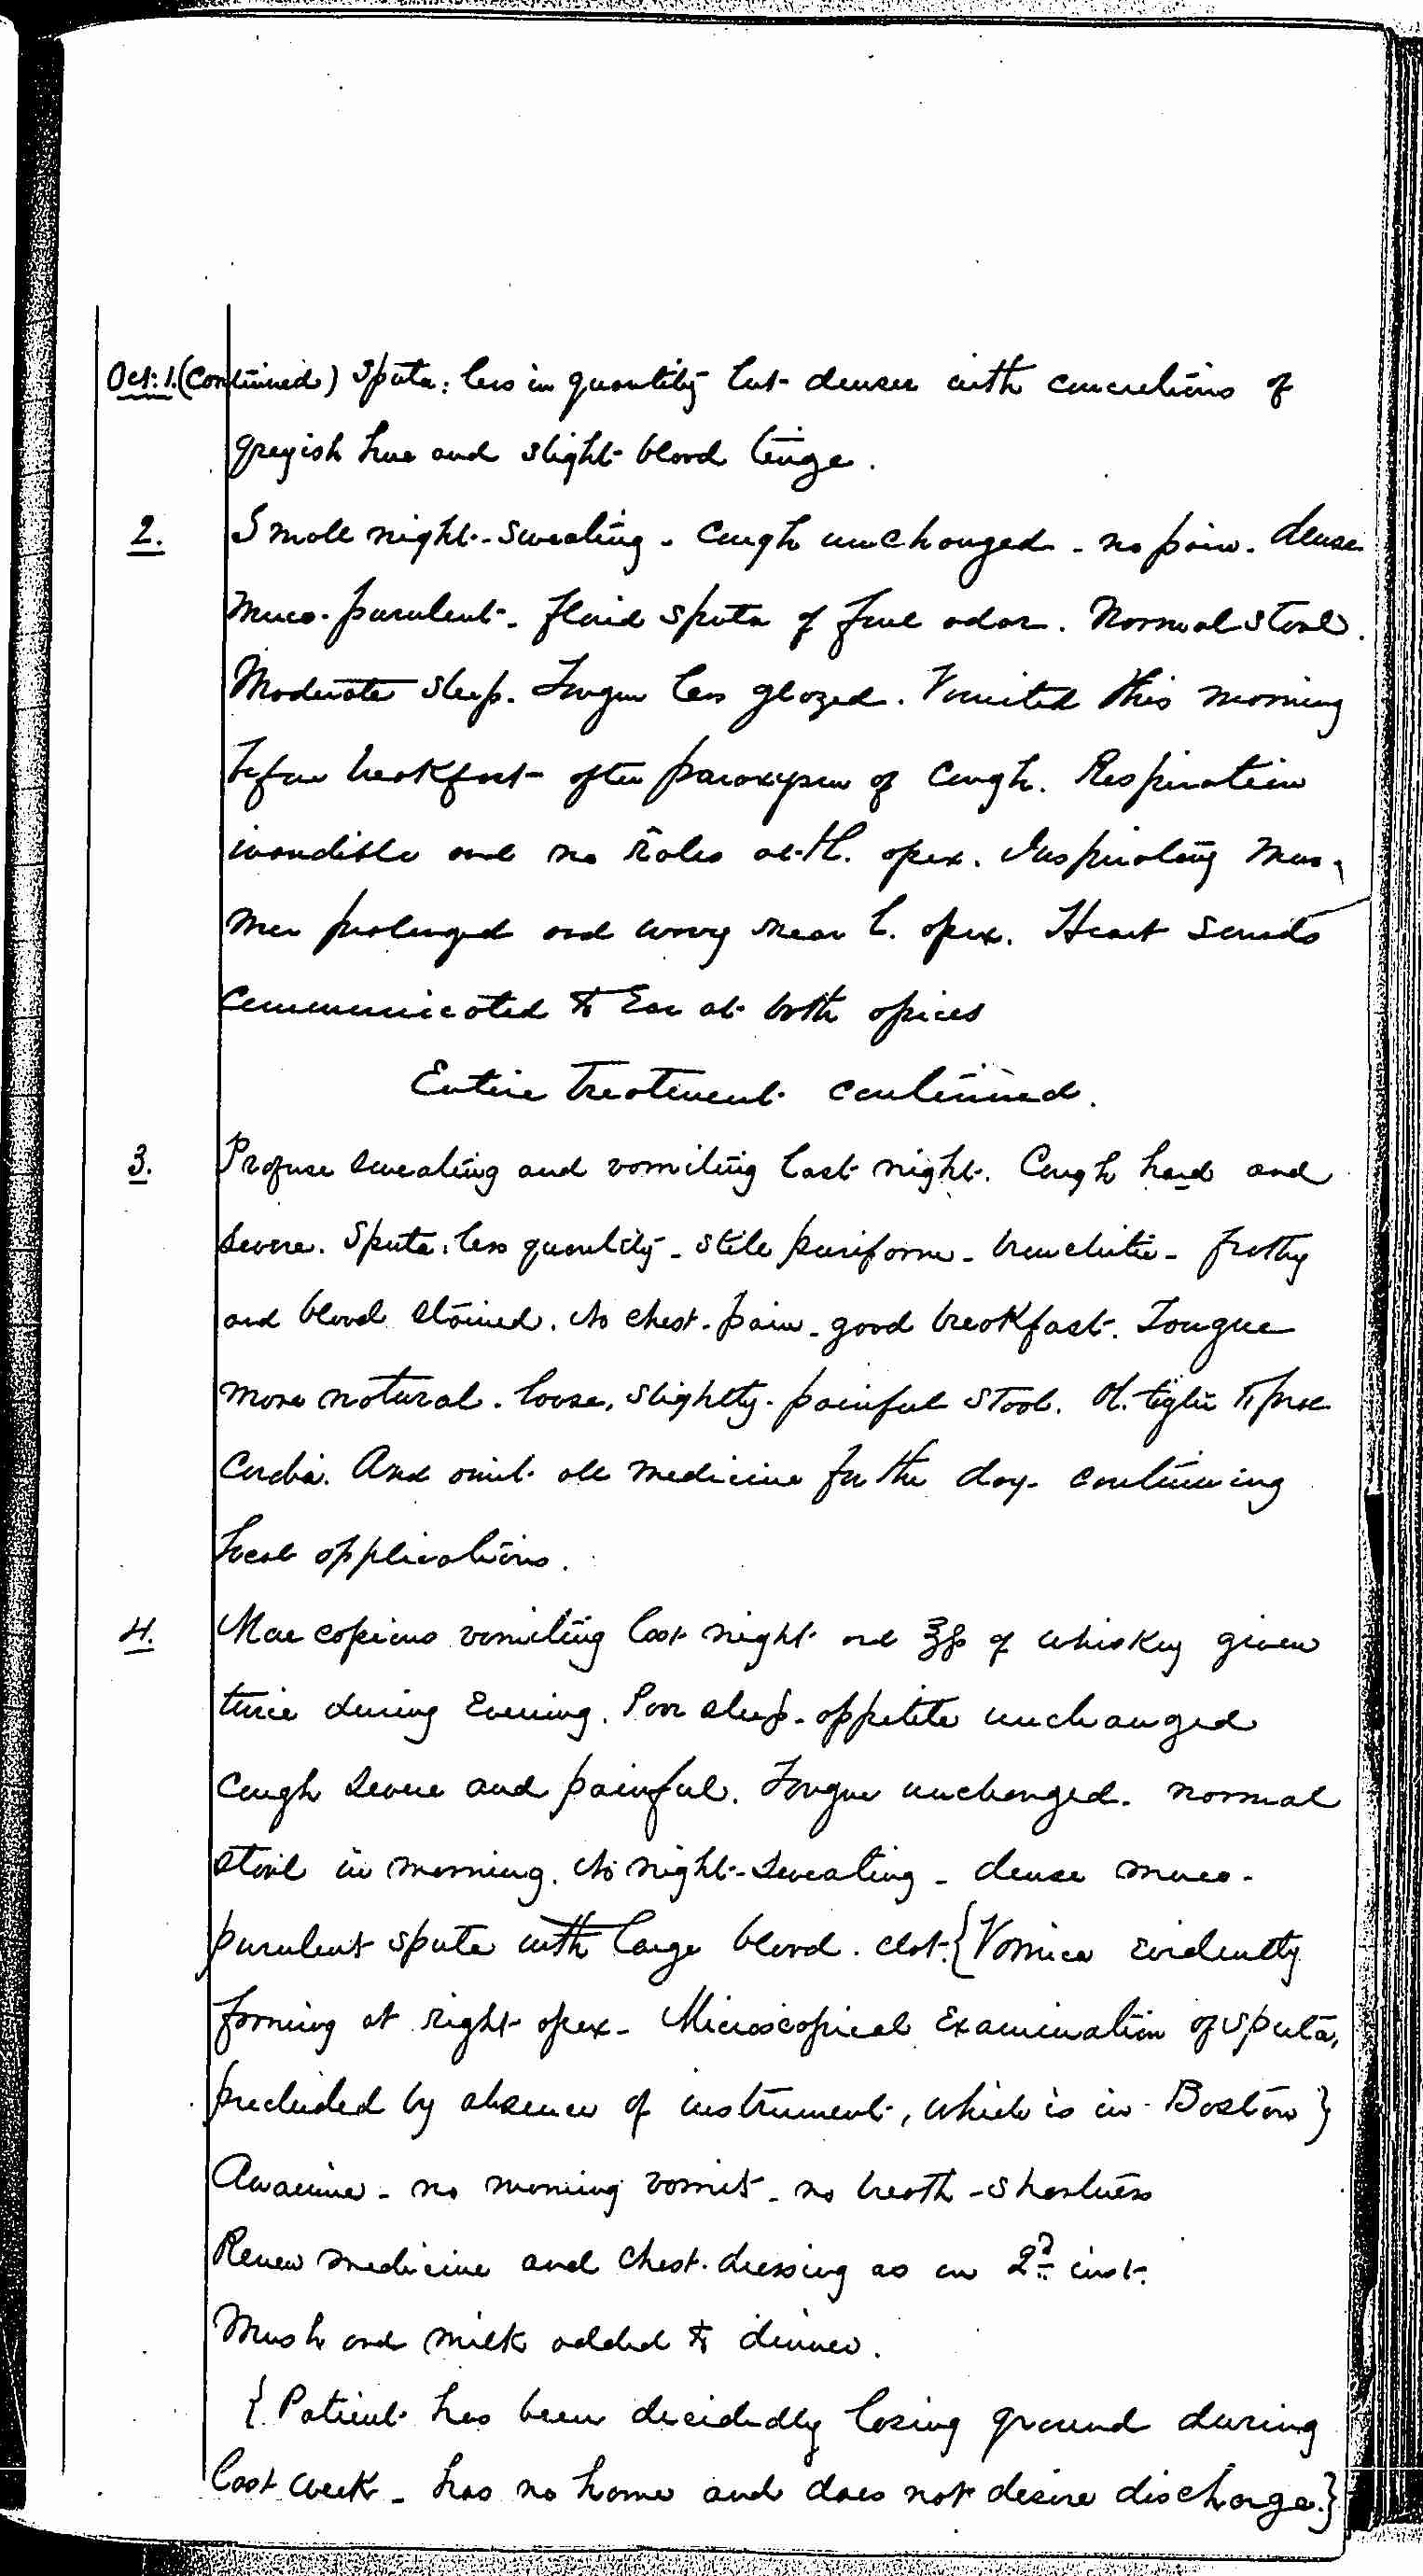 Oct: 1. (Continued) Sputa: less in quantity but denser with concretions of
greyish hue and slight blood tinge.
2. Small night-sweating - Cough unchanged - no pain. dense
muco-purulent - fluid sputa of foul odor. Normal stool.
Moderate sleep. Tongue less glazed. Vomited this morning
before breakfast after paroxysm of cough. Respiration
inaudible and no râles at r. apex. Inspiratory mur-
mur prolonged and wavy near l. apex. Heart sounds
communicated to Ear at both apices
Entire treatment continued.
3. Profuse sweating and vomiting last night. Cough hard and
severe. Sputa: less quantity - still puriform - bronchitic - frothy
and blood stained. No chest-pain - good breakfast. Tongue
more natural. loose, slightly-painful stool. Ol. tiglii to præ-
cordia. And omit all medicine for the day - continuing
local applications.
4. More copious vomiting last night and ℥ss of whiskey given
twice during Evening. Poor sleep - appetite unchanged
Cough severe and painful. Tongue unchanged. normal
stool in morning. No night-sweating - dense muco-
purulent sputa with large blood-clot. {Vomica evidently
forming at right apex - Microscopical Examination of sputa,
precluded by absence of instrument, which is in Boston}
Anæmia - no morning vomit - no breath-shortness
Renew medicine and chest-dressing as on 2d inst.
Mush and milk added to dinner.
{Patient has been decidedly losing ground during
last week - has no home and does not desire discharge.}